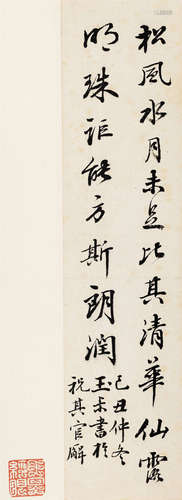 松風水月未足比其清華仙露
明珠詎能方斯朗潤
己丑仲冬
玉未書於
祝其官廨